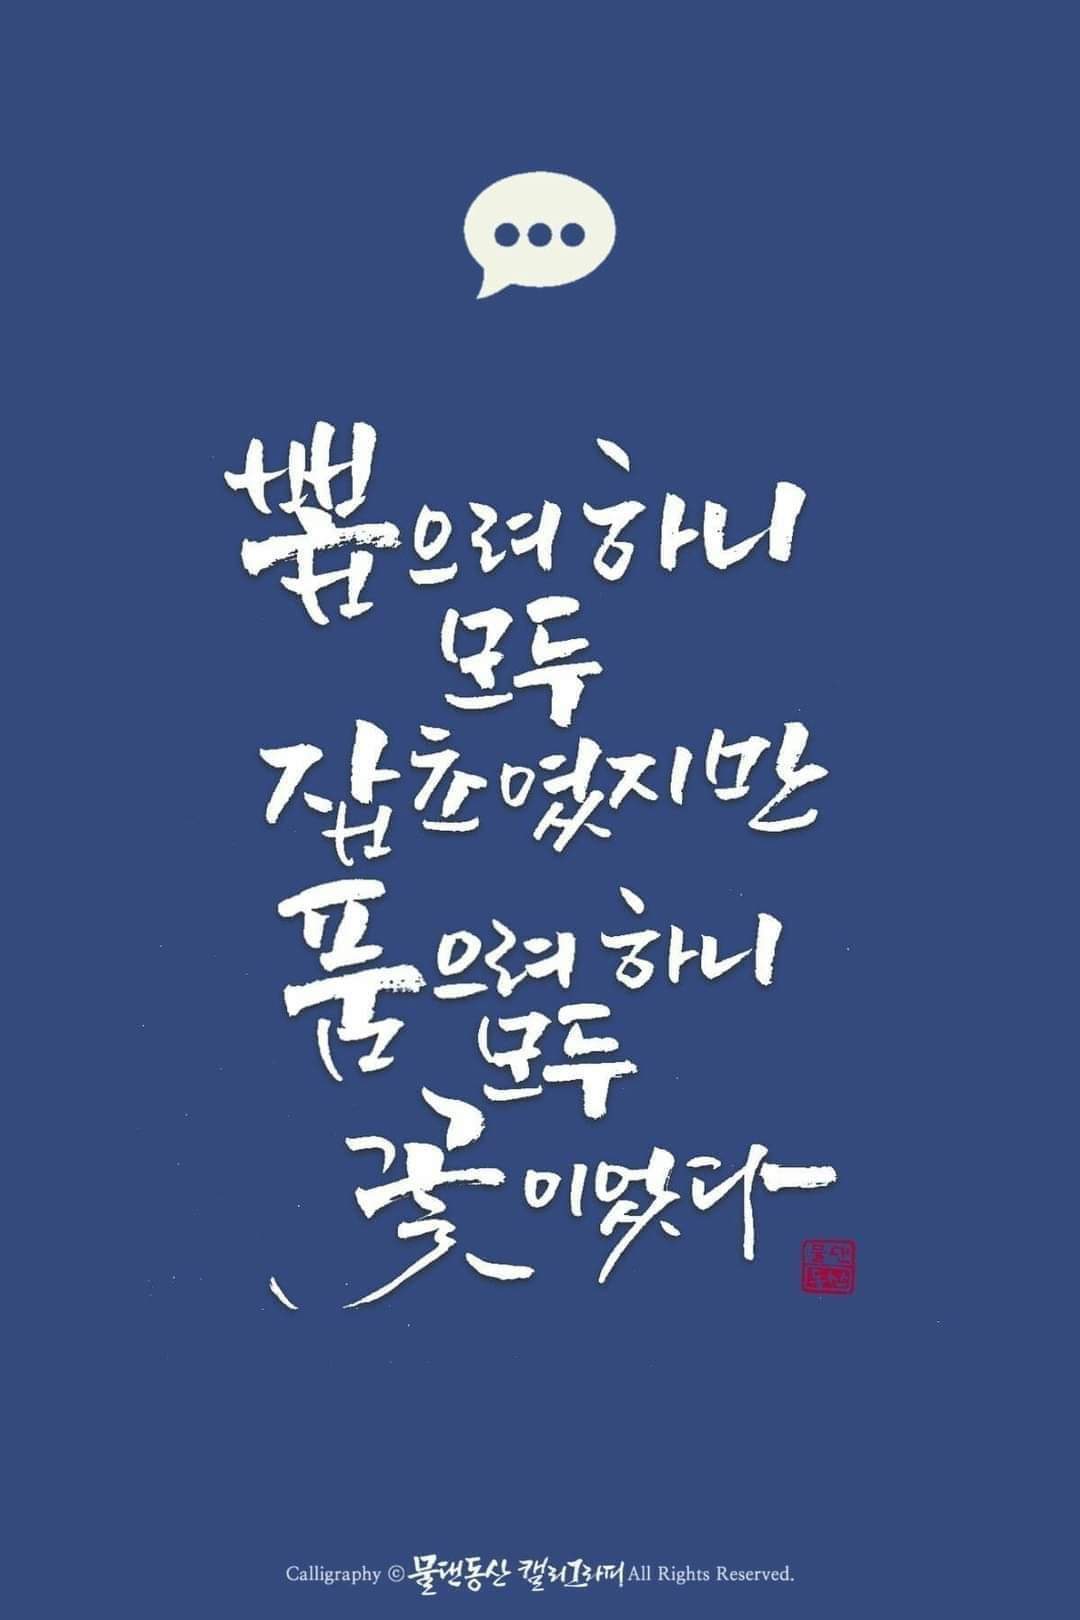 뽑으려 하니
모두
잡초였지만
품으려 하니
모두
꽃이었다
물댄
동산
Calligraphy ⓒ물댄동산 캘리그라피 All Rights Reserved.